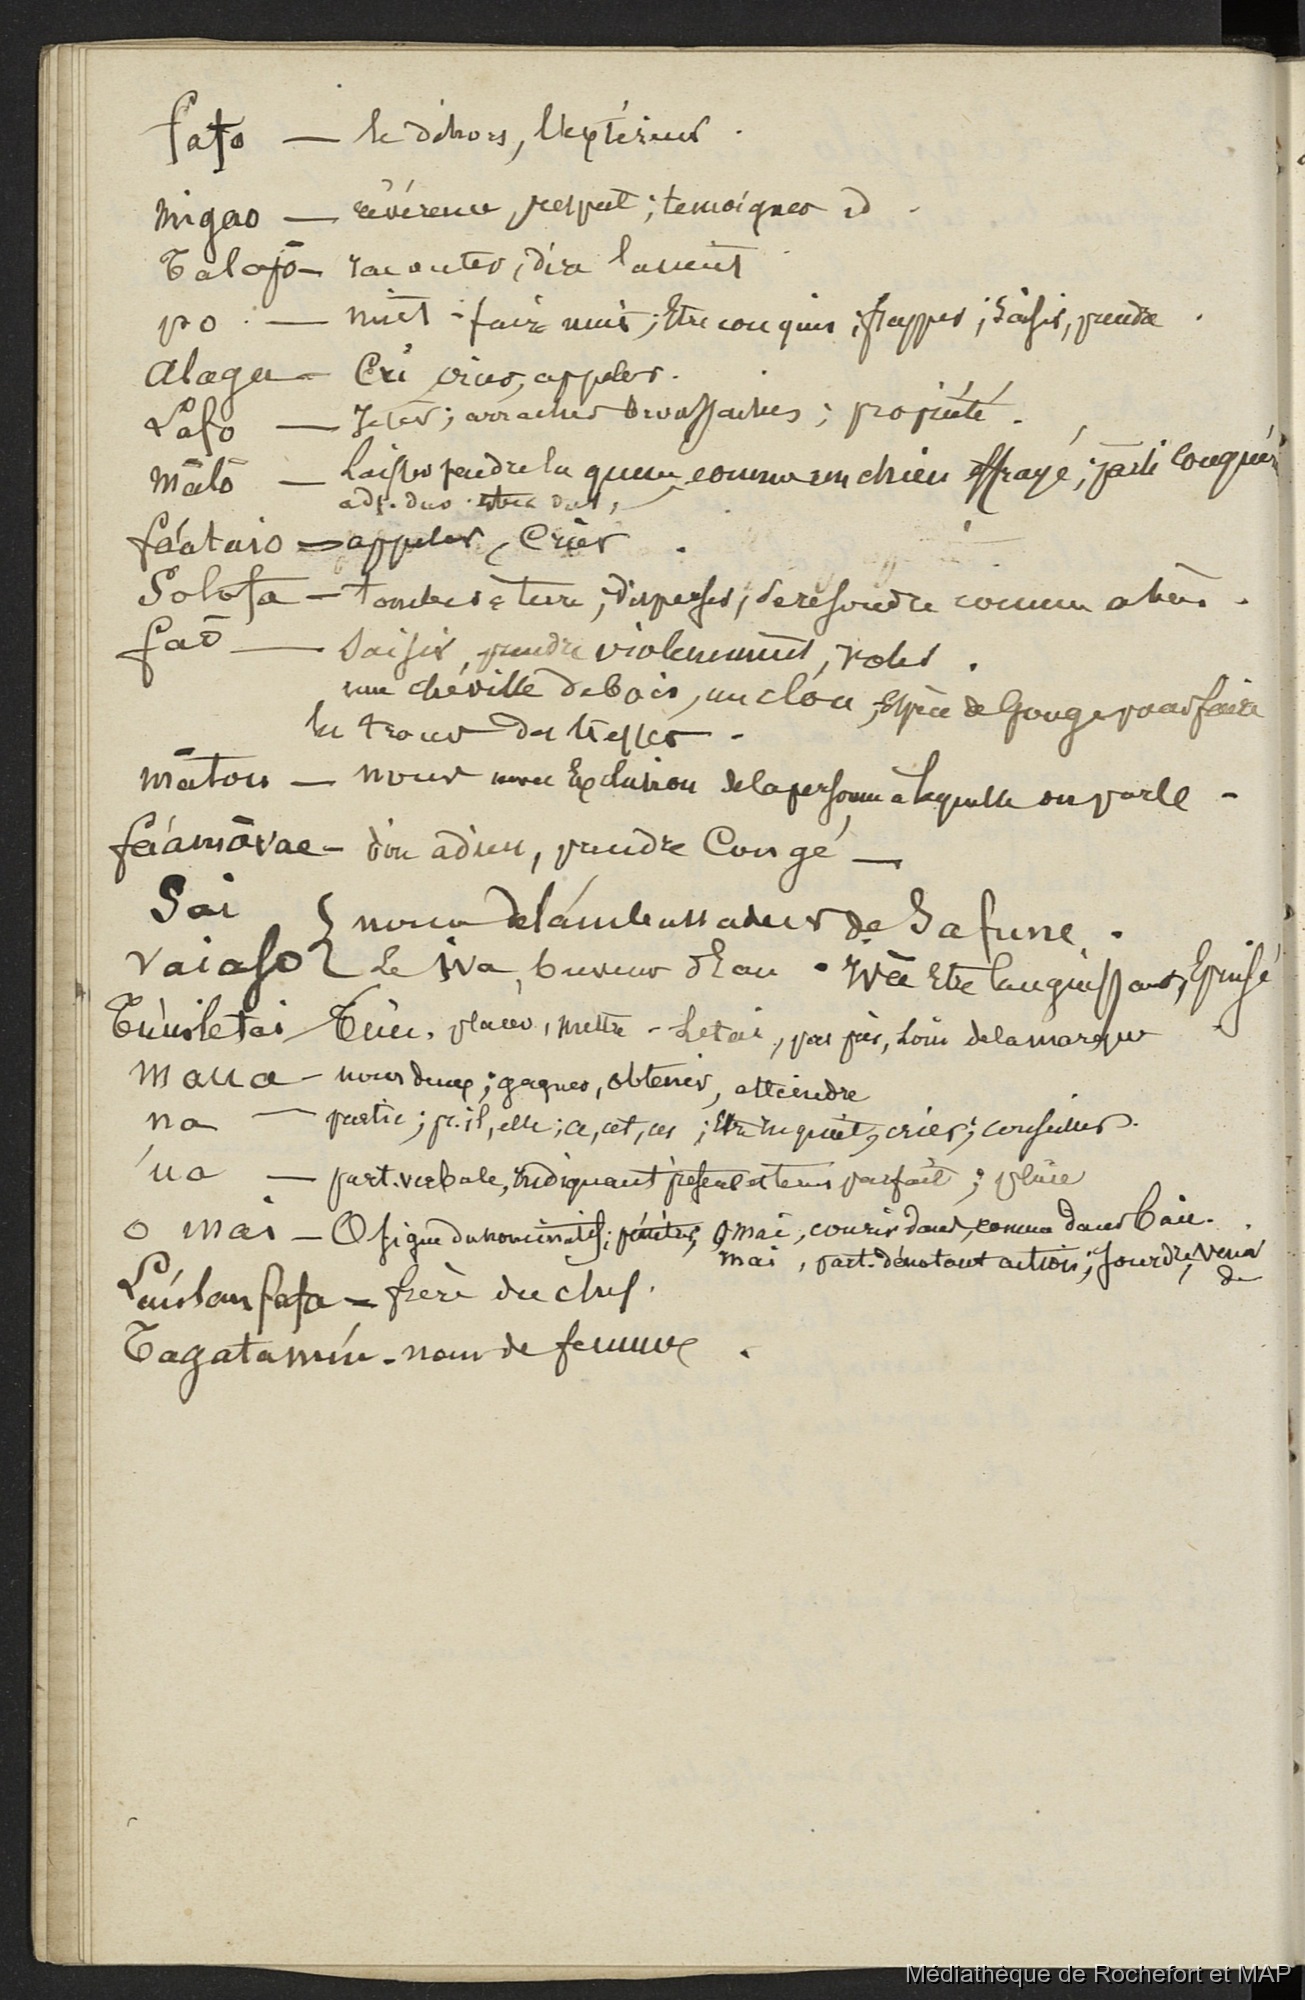 fafo — le déhors, l'extérieur.
migao — révérence, respect; temoigner id.
Talafō — raconter, dire la
po — nuit - faire nuit; être conquis; frapper; saisir, prendre.
alaga — Cri, crier, appeler.
Lafo — Jeter; arracher brouss ailles; propriété.
mātō — laisser pendre la queue, comme un chien effrayé; parti conquis
adj. dur être dur,
fáataio — appeler, crier.
Solofa — tomber à terre; disperser; se résoudre comme abcès.
faō — Saisir, prendre violemment, voler.
une chéville de bois, un clóu, Espèce de Gouge pour faire
les trous des tresses.
mātou — nous avec Exclusion de la personne à laquelle on parle -
fáamāvae - dire adieu, prendre Congé —
Sai
vaiafo } nom de l'ámbassadeur de Safune.
Le iva, buveur d'Eau. ivā Etre languissant, Epuisé
Tuuiletai Tuu. placer, mettre - letai, pas pris, loin de la marque
maua - nous deux; gagner, obtenir, atteindre
na — partic; pr. il, elle; ce, cet, ces; être inquiet, crier; conseiller.
'ua — part. verbale, indiquant présent et tems parfait; pluie
o mai — O signe du nominatif; pénétrer, o mai, courir dans, comme dans baie.
mai, part. dénotant action; sourdre, venir
de
fafa — frère du chef.
Tagatamíu - nom de femme.
Médiathèque de Rochefort et MAP